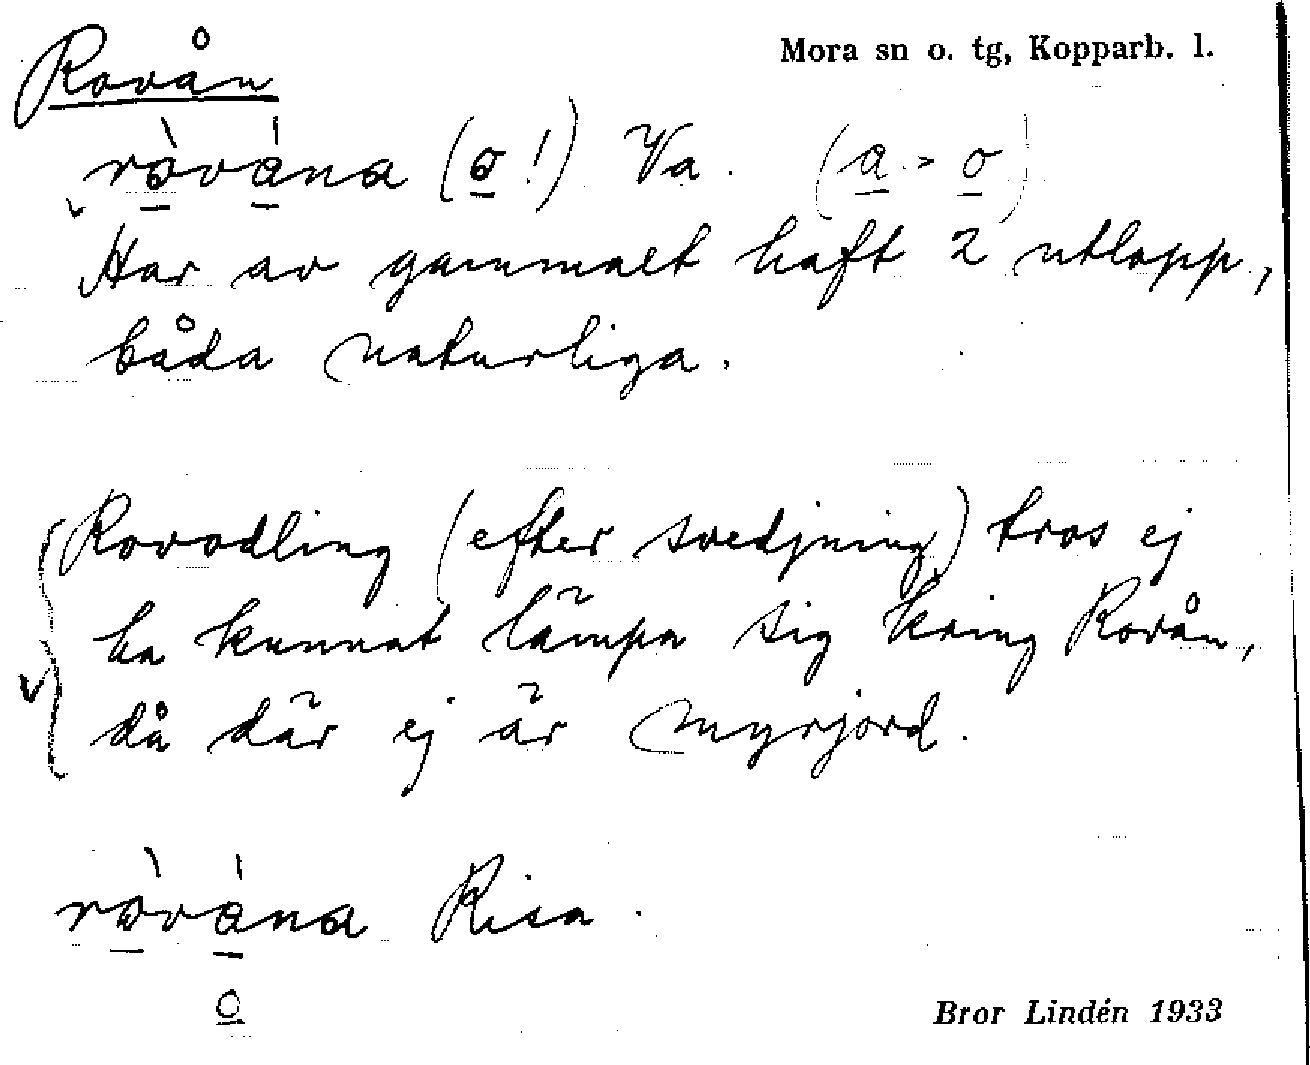 Rovån
Mora sn o. tg, Kopparb. l.
ròvána (o!) Va. (a > o)
Har av gammalt haft 2 utlopp,
båda naturliga.
Rovodling (efter svedjning) tros ej
ha kunnat lämpa sig kring Rovån,
då där ej är myrjord.
ròvána Risa.
o
Bror Lindén 1933